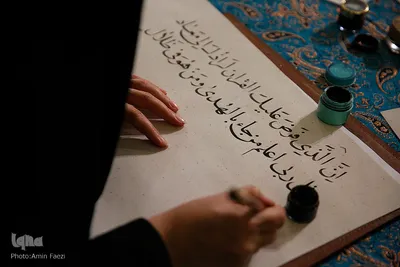 اِنَّ الَّذی فَرَضَ عَلَیكَ القُرآنَ لَرادُّكَ اِلی مَعاد
قُل رَبّی اَعلَمُ مَن جاءَ بِالهُدی وَمَن هُوَ فی ضَلال
iqna
Photo:Amin Faezi